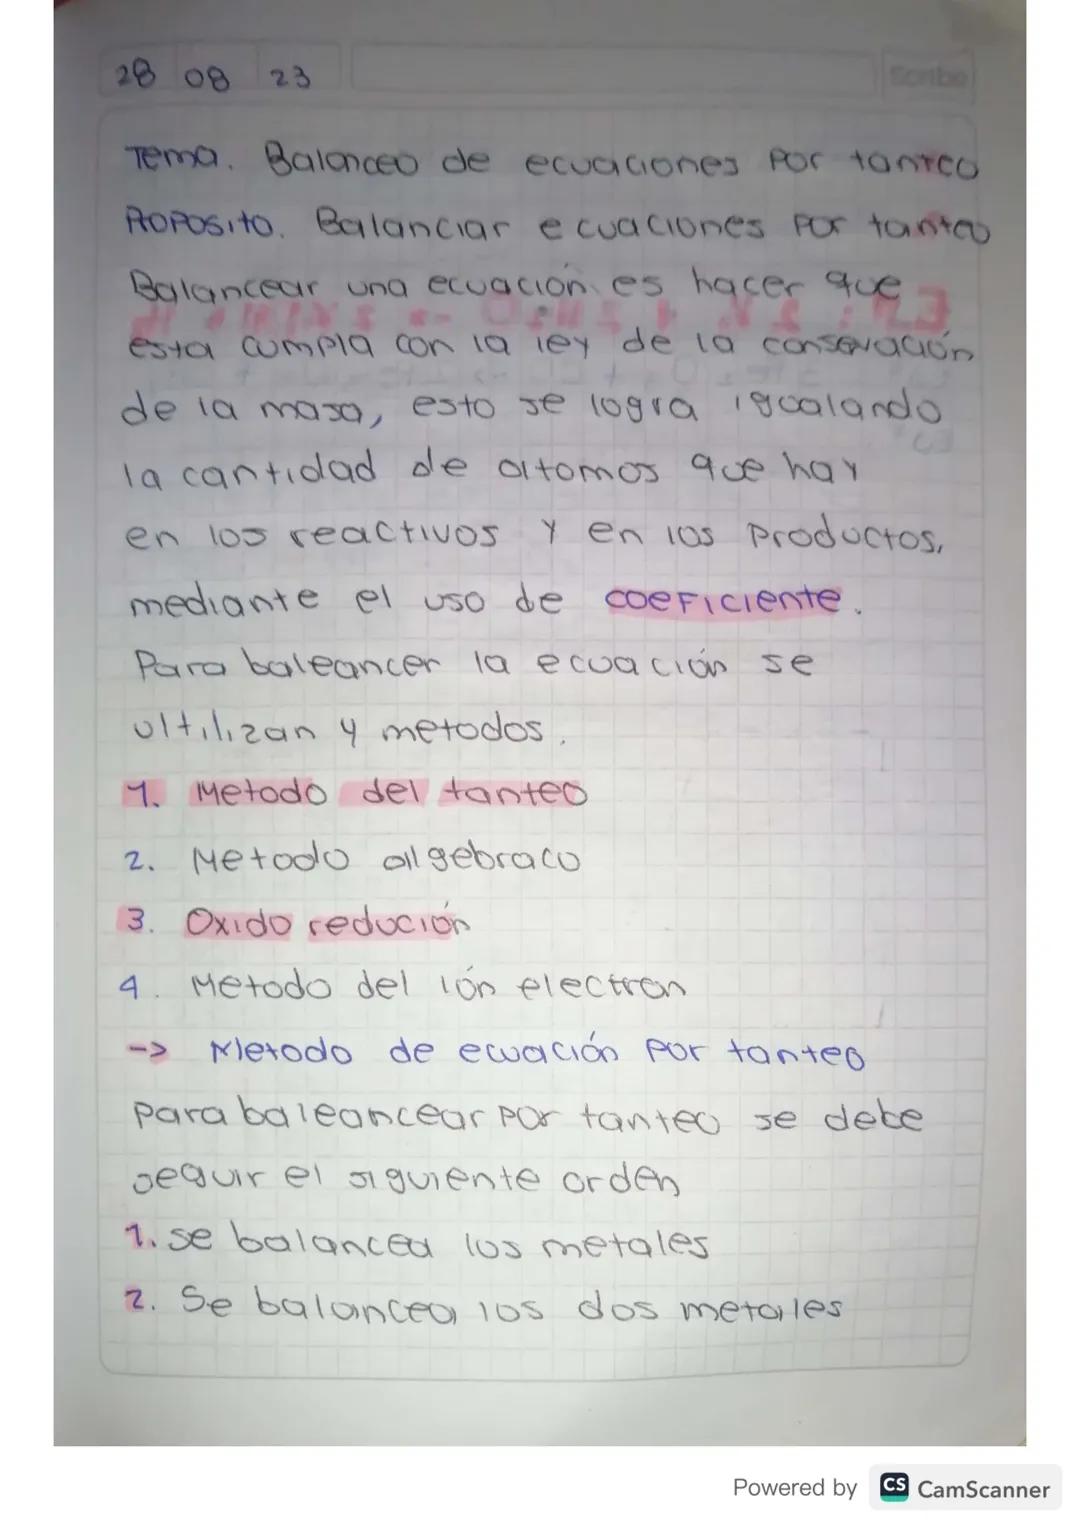 28 08 23
Scribe
Tema. Balanceo de ecuaciones por tanteo
Proposito. Balanciar ecuaciones por tanteo
Balancear una ecuación es hacer que
esta cumpla con la ley de la conservación
de la masa, esto se logra igualando
la cantidad de atomos que hay
en los reactivos y en los productos,
mediante el uso de coeficiente.
Para baleancer la ecuación se
ultilizan 4 metodos.
1. Metodo del tanteo
2. Metodo algebraco
3. Oxido redución
4. Metodo del ión electron
-> Metodo de ecuación por tanteo
para baleancear por tanteo se debe
seguir el siguiente orden
1. se balancea los metales
2. Se balancea los dos metales
Powered by CS CamScanner